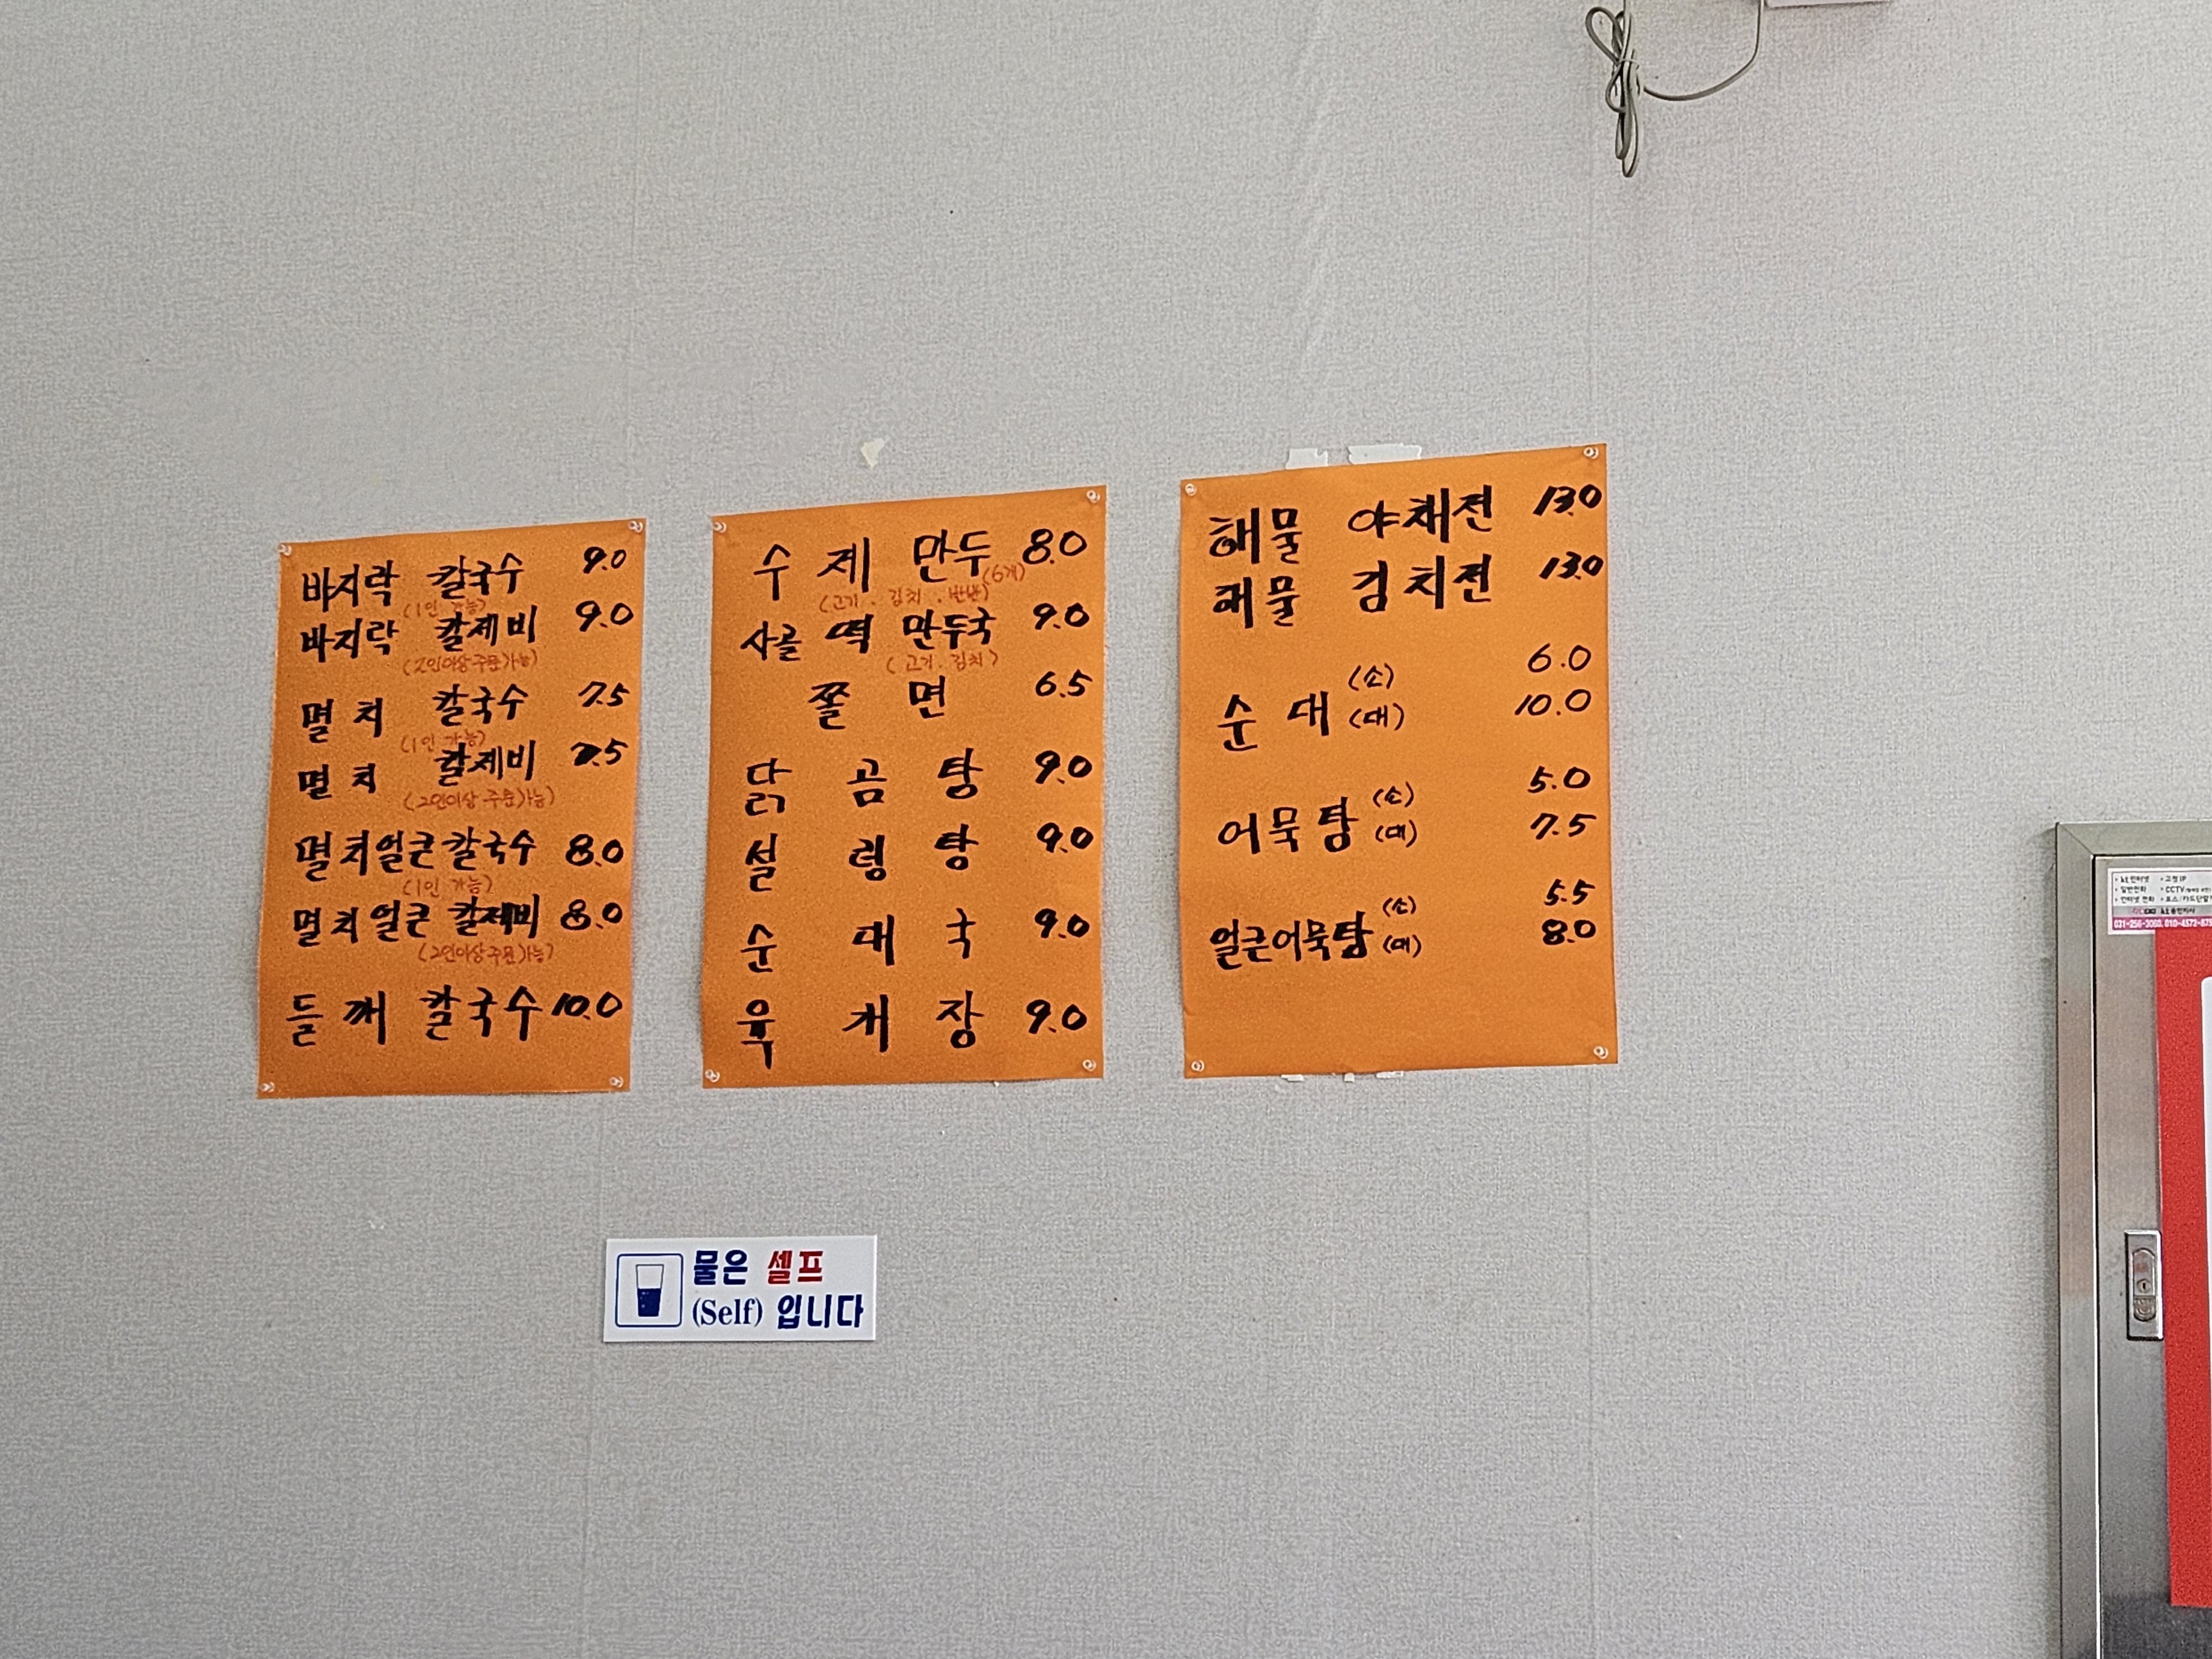 바지락 칼국수 9.0
(1인 가능)
바지락 칼제비 9.0
(2인이상 주문가능)
멸치 칼국수 7.5
(1인 가능)
멸치 칼제비 7.5
(2인이상 주문가능)
멸치얼큰칼국수 8.0
(1인 가능)
멸치얼큰칼제비 8.0
(2인이상 주문가능)
들깨 칼국수 10.0
수제 만두 8.0
(6개)
(고기. 김치. 반반)
사골 떡 만두국 9.0
(고기. 김치)
쫄면 6.5
닭곰탕 9.0
설렁탕 9.0
순대국 9.0
육개장 9.0
해물 야채전 13.0
해물 김치전 13.0
순대 (소) 6.0
(대) 10.0
어묵탕 (소) 5.0
(대) 7.5
얼큰어묵탕 (소) 5.5
(대) 8.0
물은 셀프
(Self) 입니다
kt 인터넷 • 고정IP
• 일반전화 • CCTV
• 인터넷 전화